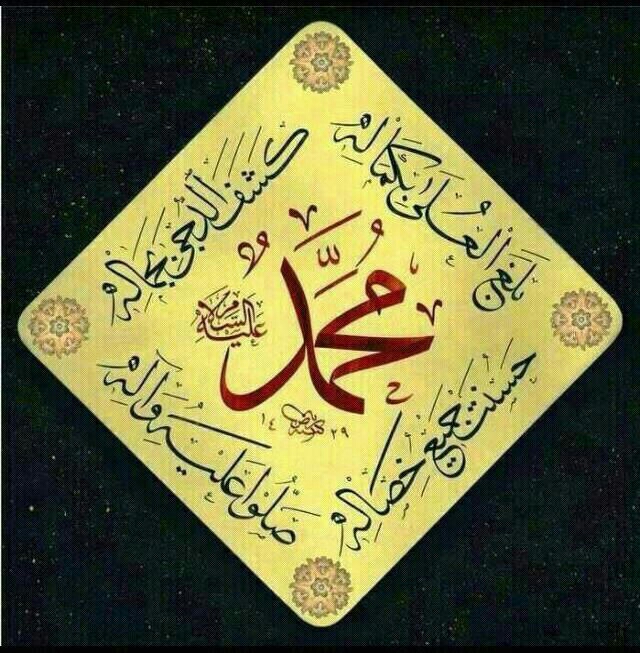 بَلَغَ الْعُلَىٰ بِكَمَالِهِ
كَشَفَ الدُّجَىٰ بِجَمَالِهِ
حَسُنَتْ جَمِيعُ خِصَالِهِ
صَلُّوا عَلَيْهِ وَآلِهِ
مُحَمَّدٌ
عليه السلام
١٤٢٩